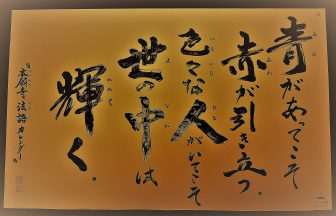 青があってこそ
赤が引き立つ。
色々な人がいてこそ
世の中は
輝く。
本願寺法語カレンダーの